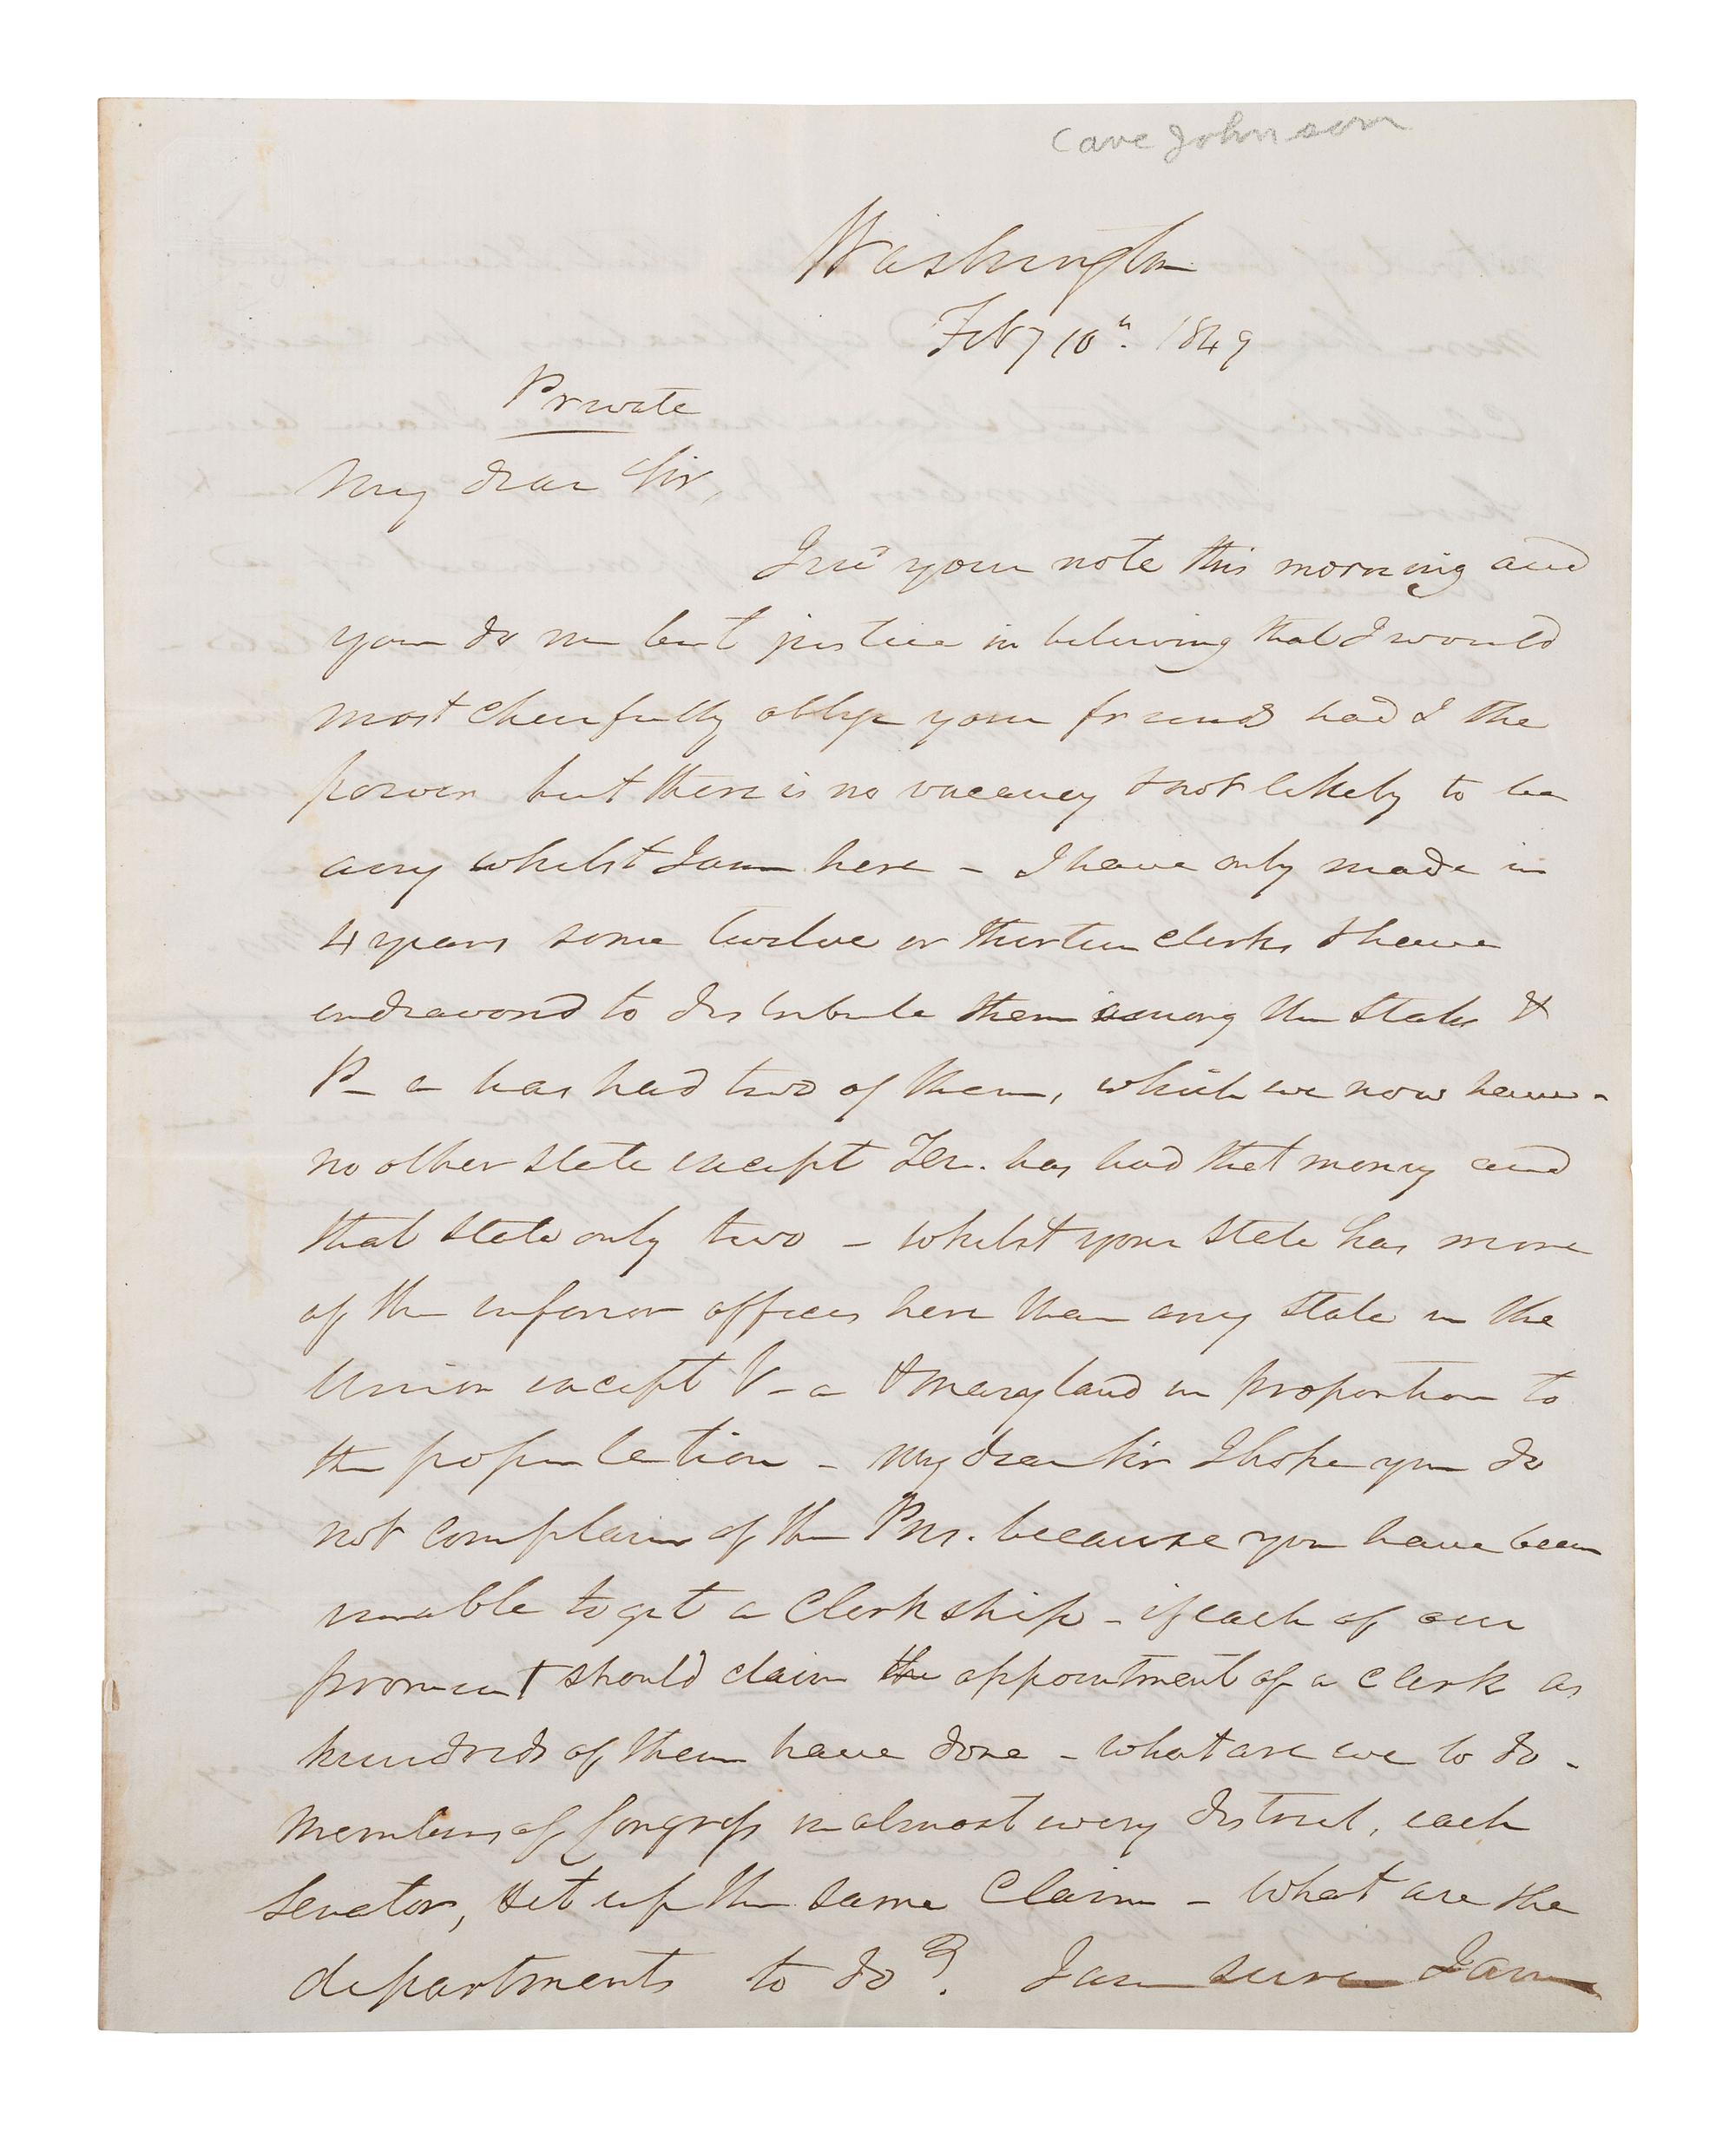 Cave Johnson
Washington
Feby 10th. 1849
Private
My dear Sir,
I recd your note this morning and
you do me but justice in believing that I would
most cheerfully oblige your friend had I the
power but there is no vacancy & not likely to be
any whilst I am here - I have only made in
4 years some twelve or thirteen clerks & have
endeavord to distribute them among the States &
P-a has had two of them, which we now have -
no other state except Ten. has had that many and
that state only two - whilst your state has more
of the inferior offices here than any state in the
Union except V-a & Maryland in proportion to
the population - my dear Sir I hope you do
not complain of the Pres. because you have been
unable to get a Clerkship - if each of our
prominent should claim the appointment of a clerk as
hundreds of them have done - what are we to do -
Members of Congress in almost every district, each
Senator, set up the same claim - what are the
departments to do? I am sure I am